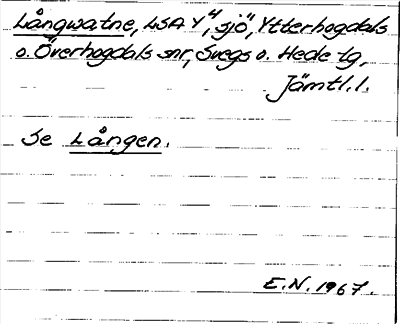 Långwatne, LSA Y⁴, "sjö", Ytterhogdals
o. Överhogdals snr, Svegs o. Hede tg,
Jämtl. l.
Se Lången.
E.N. 1967.